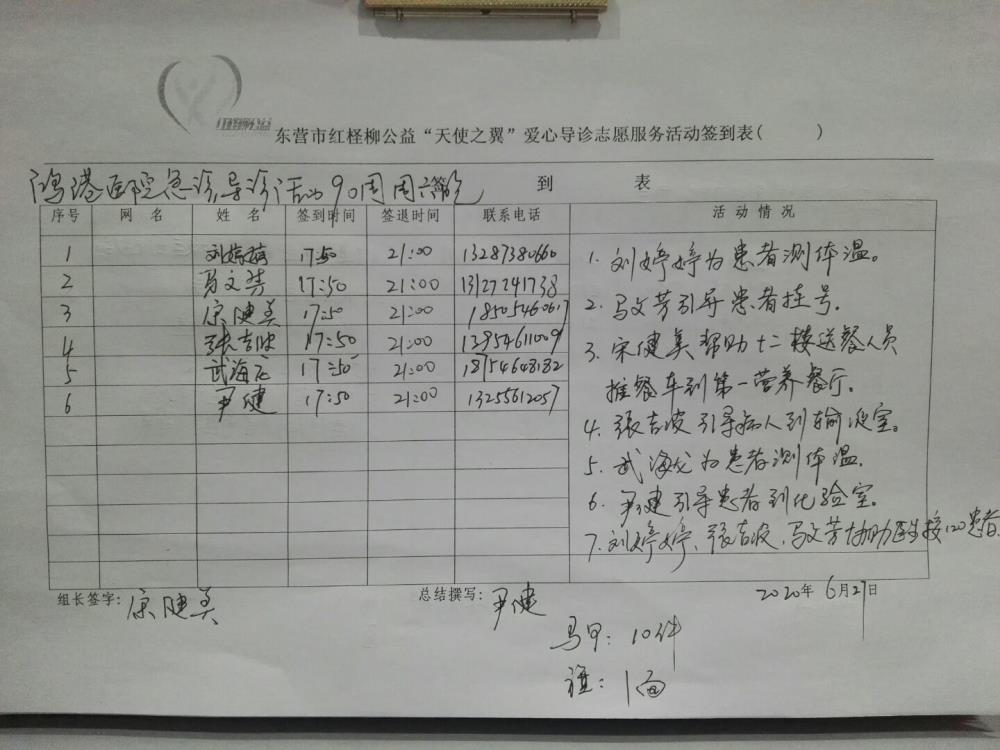 红柽柳公益
东营市红柽柳公益“天使之翼”爱心导诊志愿服务活动签到表( )
鸿港医院急诊导诊活动90周周六 签 到 表
序号 网 名 姓 名 签到时间 签退时间 联系电话 活 动 情 况
1 刘婷婷 17:50 21:00 13287380660
2 马文芳 17:50 21:00 13127241738
3 宗健美 17:50 21:00 18505460617
4 张吉波 17:50 21:00 13954611009
5 武海龙 17:50 21:00 18754648182
6 尹健 17:50 21:00 13255612057
1. 刘婷婷为患者测体温。
2. 马文芳引导患者挂号。
3. 宗健美帮助十二楼送餐人员
推餐车到第一营养餐厅。
4. 张吉波引导病人到输液室。
5. 武海龙为患者测体温。
6. 尹健引导患者到化验室。
7. 刘婷婷、张吉波、马文芳协助医生接120患者
组长签字: 宗健美 总结撰写: 尹健 2020年6月27日
马甲: 10件
旗: 1面